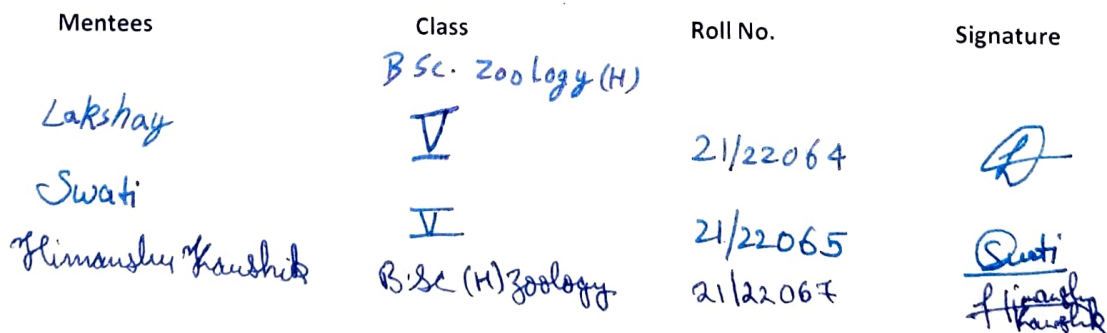 Mentees Class Roll No. Signature
BSc. Zoology (H)
Lakshay V 21/22064
Swati V 21/22065 Swati
Himanshu Kaushik B.Sc (H) Zoology 21/22067 Himanshu
Kaushik